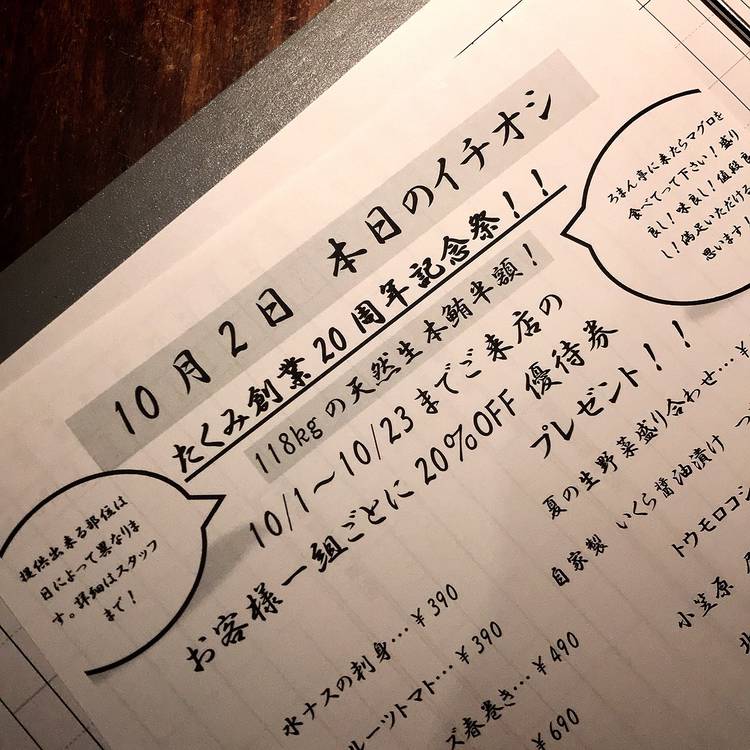 10月2日 本日のイチオシ
たくみ創業20周年記念祭！！
118kgの天然生本鮪半額！
10/1～10/23までご来店の
お客様一組ごとに20%OFF優待券
プレゼント！！
ろまん亭に来たらマグロを
食べてって下さい！盛り
良し！味良し！値段良
し！満足いただける
思います！
提供出来る部位は
日によって異なりま
す。詳細はスタッフ
まで！
水ナスの刺身…￥390
ルーツトマト…￥390
ズ春巻き…￥490
￥690
夏の生野菜盛り合わせ…￥
自家製 いくら醤油漬け つ
トウモロコシ
小笠原